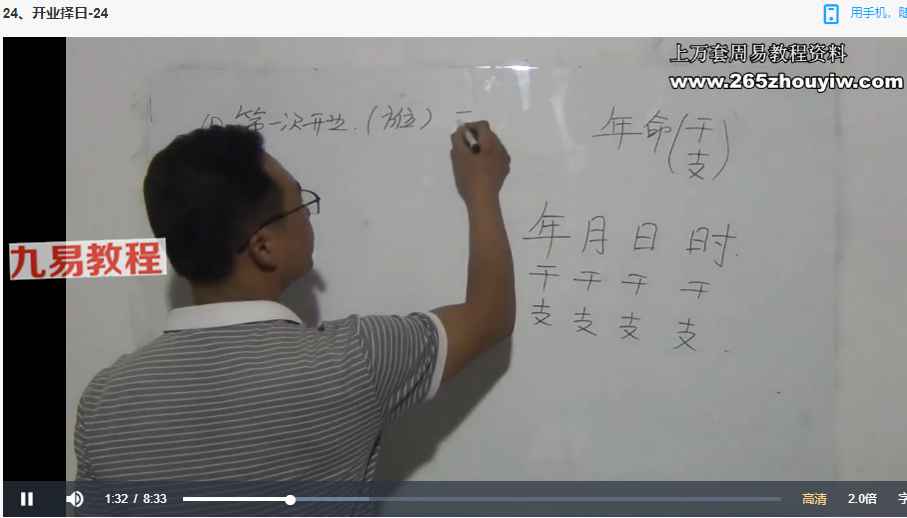 24、开业择日-24
用手机，随
上万套周易教程资料
www.265zhouyiw.com
第一次开业.(方位)
年命(干
支)
年月日时.
干干干干
支支支支.
九易教程
1:32 / 8:33
高清
2.0倍
字